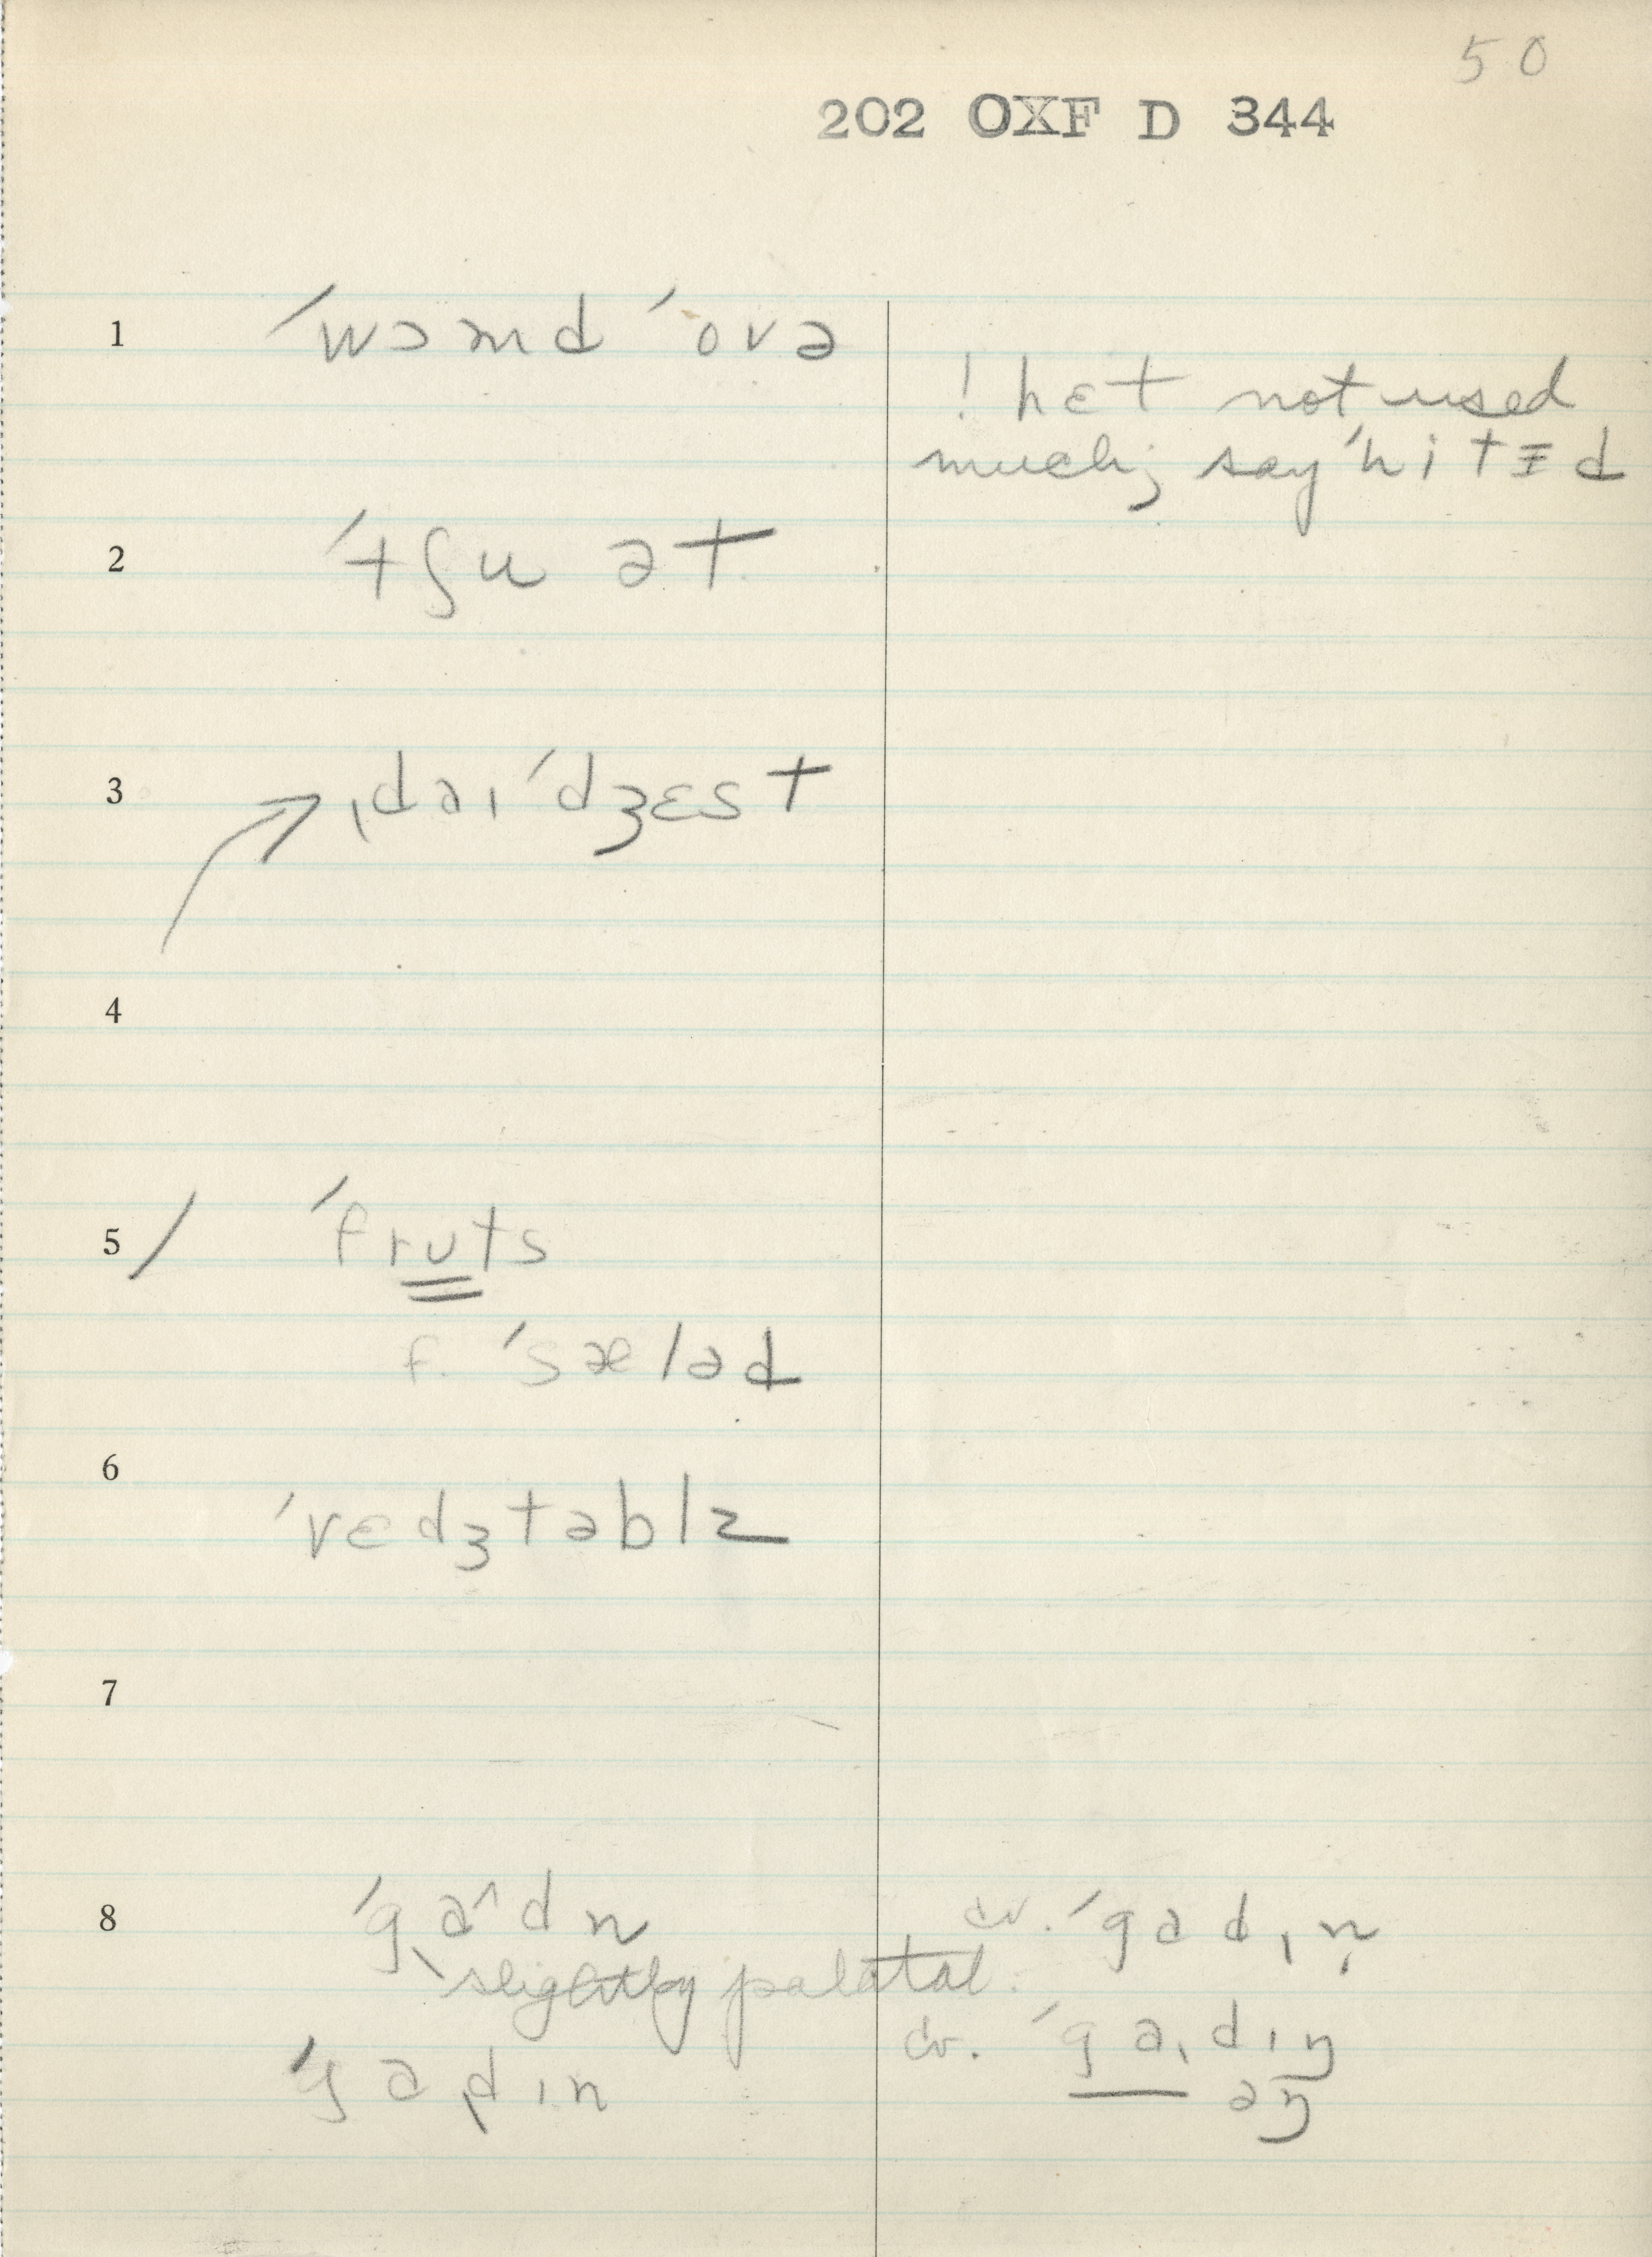 50
202 OXF D 344
1 ˈwɔmd ˈovə
! hɛt not used
much; say ˈhitɪd
2 ˈtʃuət
3 ˌdaɪˈdʒɛst
4
5 / ˈfruts
f. ˈsæləd
6 ˈvɛdʒtəblz
7
8 ˈgaˆdn
cv. ˈgadɪn
slightly palatal.
cv. ˈgaɪdɪŋ
əŋ
ˈgadɪn